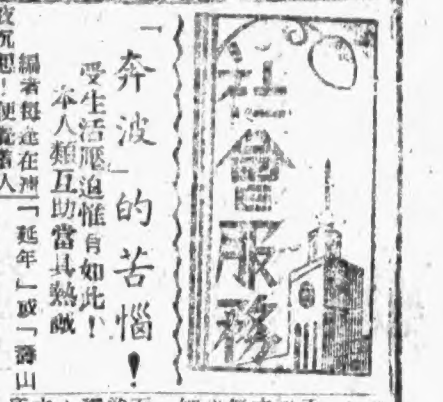 社會服務
「奔波」的苦惱！
受生活壓迫惟有如此！
本人類互助當具熱誠
「延年」或「壽山